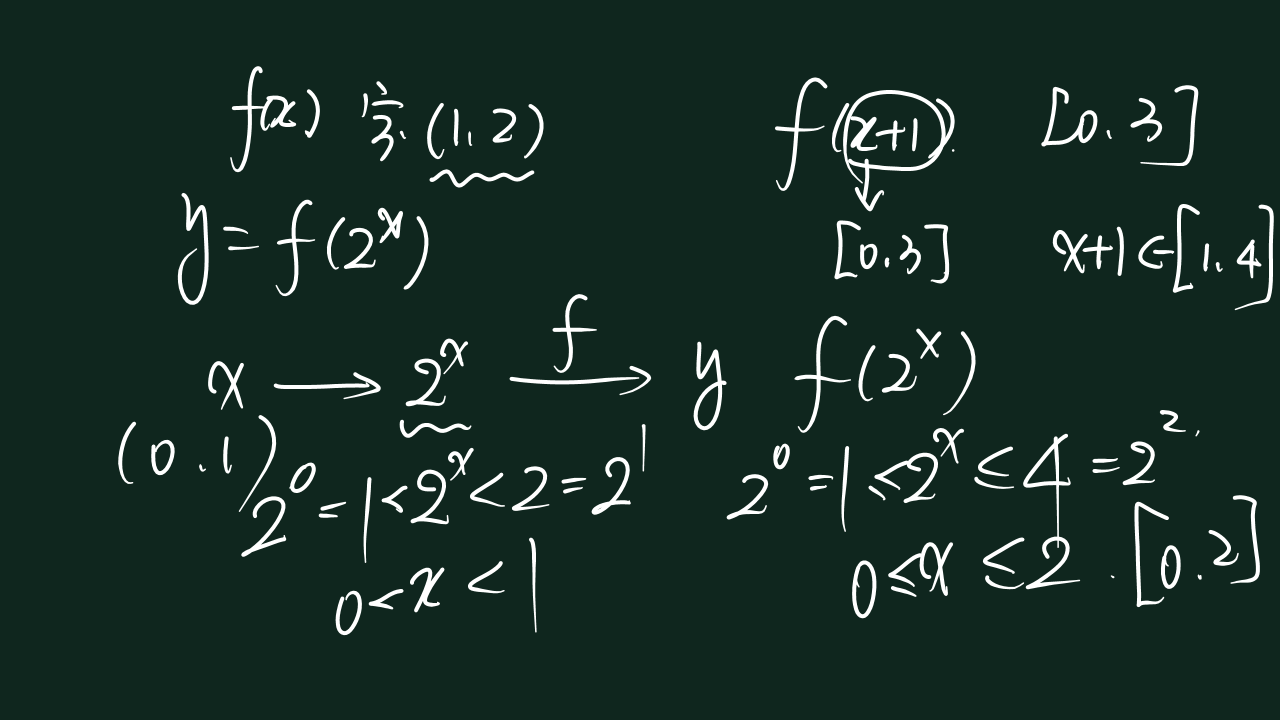 f(x) (1, 2)
y = f(2^x)
x → 2^x →^f y
(0, 1)
2^0 = 1 < 2^x < 2 = 2^1
0 < x < 1
f(x+1) [0, 3]
↓
[0, 3] x+1 ∈ [1, 4]
f(2^x)
2^0 = 1 ≤ 2^x ≤ 4 = 2^2
0 ≤ x ≤ 2. [0, 2]